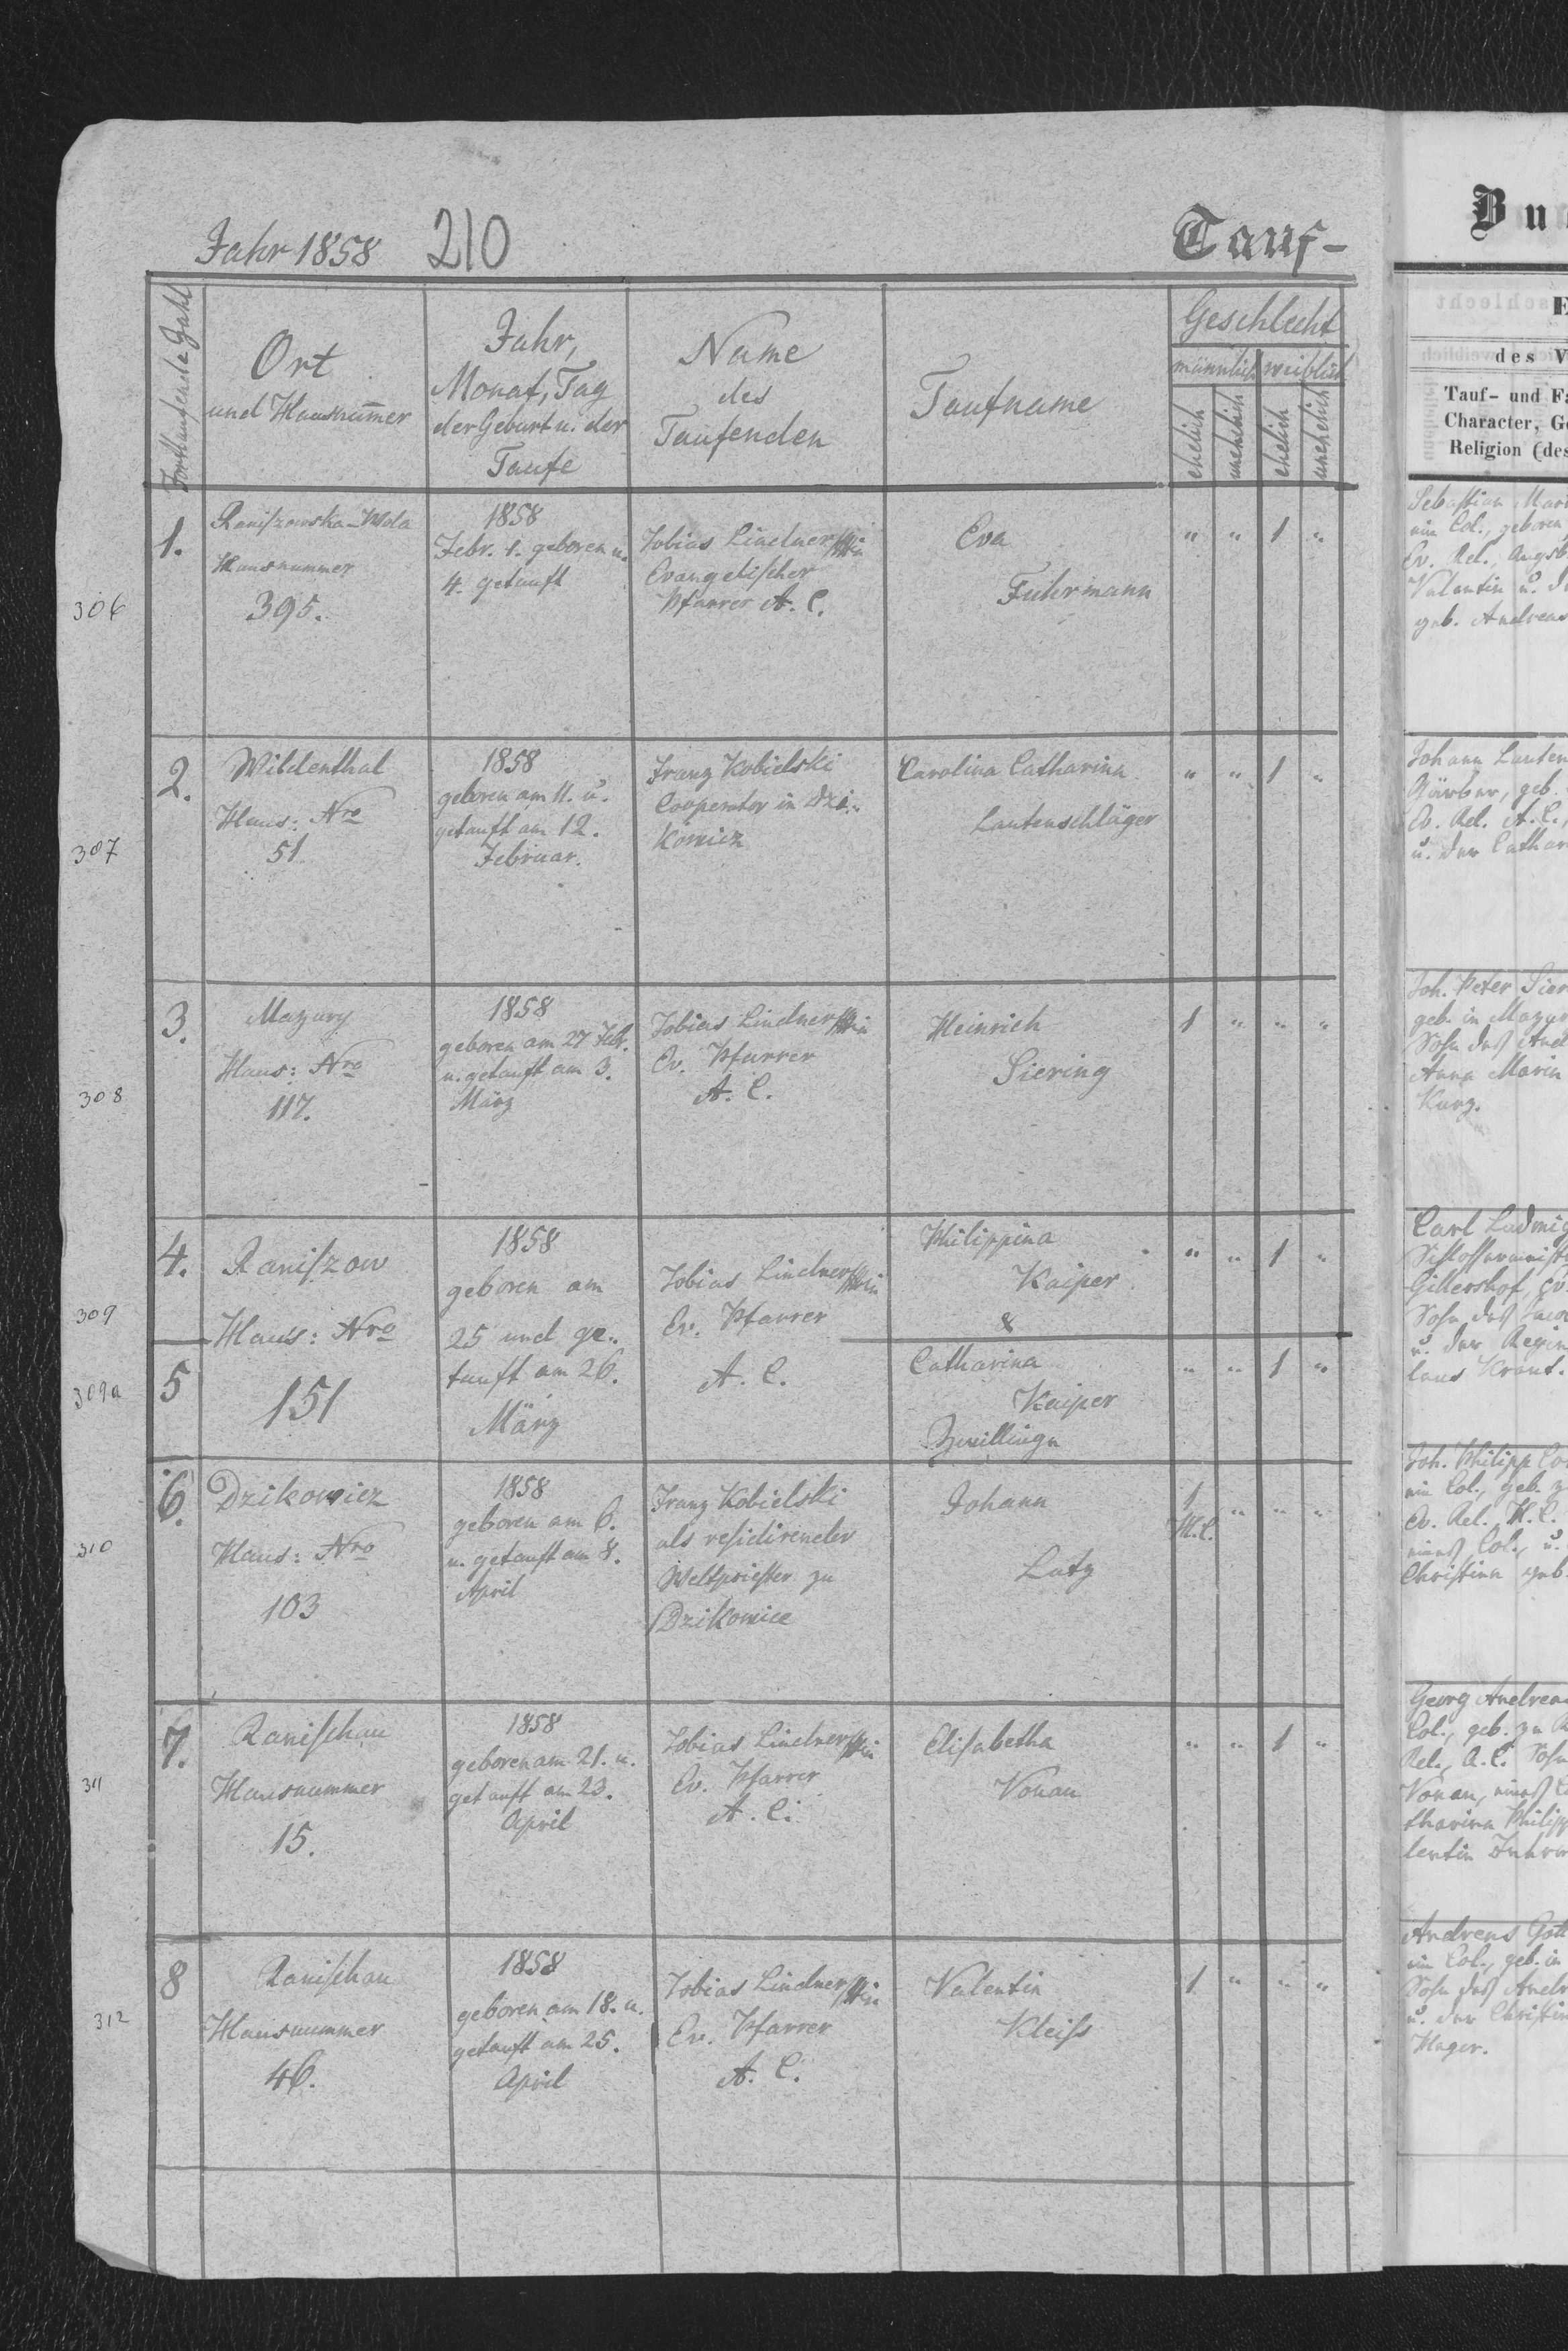 Jahr 1858 210 Tauf-
Fortlaufende Zahl
Ort
und Hausnum̄er
Jahr,
Monat, Tag
der Geburt u. der
Taufe
Name
des
Taufenden
Taufname
Geschlecht
männlich weiblich
ehelich unehelich ehelich unehelich
306
1.
Raniszowska-Wola
Hausnummer
395.
1858
Febr. 1. geboren u.
4. getauft
Tobias Lindner
Evangelischer
Pfarrer A. C.
Eva
Fuhrmann
" " 1 "
307
2.
Wildenthal
Haus: Nro
51
1858
geboren am 11. u.
getauft am 12.
Februar.
Franz Kobielski
Cooperator in Dzi-
kowicz
Carolina Catharina
Lautenschläger
" " 1 "
308
3.
Mazury
Haus: Nro
117.
1858
geboren am 27 Febr.
u. getauft am 3.
März
Tobias Lindner
Ev. Pfarrer
A. C.
Heinrich
Siering
1 " " "
309
4.
309a
5
Raniszow
Haus: Nro
151
1858
geboren am
25 und ge-
tauft am 26.
März
Tobias Lindner
Ev. Pfarrer
A. C.
Philippina
Kaiper
&
" " 1 "
Catharina
Kaiper
Zwillinge
" " 1 "
310
6.
Dzikowiez
Haus: Nro
103
1858
geboren am 6.
u. getauft am 8.
April
Franz Kobielski
als residirender
Weltpriester zu
Dzikowice
Johann
Lutz
1 " " "
H. C.
311
7.
Ranischau
Hausnummer
15.
1858
geboren am 21. u.
getauft am 23.
April
Tobias Lindner
Ev. Pfarrer
A. C.
Elisabetha
Vonau
" " 1 "
312
8
Ranischau
Hausnummer
46.
1858
geboren am 18. u.
getauft am 25.
April
Tobias Lindner
Ev. Pfarrer
A. C.
Valentin
Kleiss
1 " " "
Bu
E
des V
Tauf- und Fa
Character, Ge
Religion (des
Sebastian Mar
ein Col., geboren
Ev. Rel., Augsb
Valentin u. d
geb. Andreas
Johann Lauten
geb.
Ev. Rel. A. C.,
u. der Cathar
Joh. Peter Sier
geb. in Mazur
Sohn des And
Anna Maria
Kurz.
Carl Ludwig
Schlossermeist
Gillershof, Ev.
Sohn des Jaco
u. der Regin
laus Kraut.
Joh. Philipp
ein Col., geb. z
Ev. Rel. H. C.
eines Col., u.
Christina geb.
Georg Andreas
Col., geb. zu R
Rel., A. C. Sohn
Vonau, eines C
tharina Philipp
lentin Fuhrm
Andreas Gott
ein Col., geb. in
Sohn des Andr
u. der Christin
Hager.